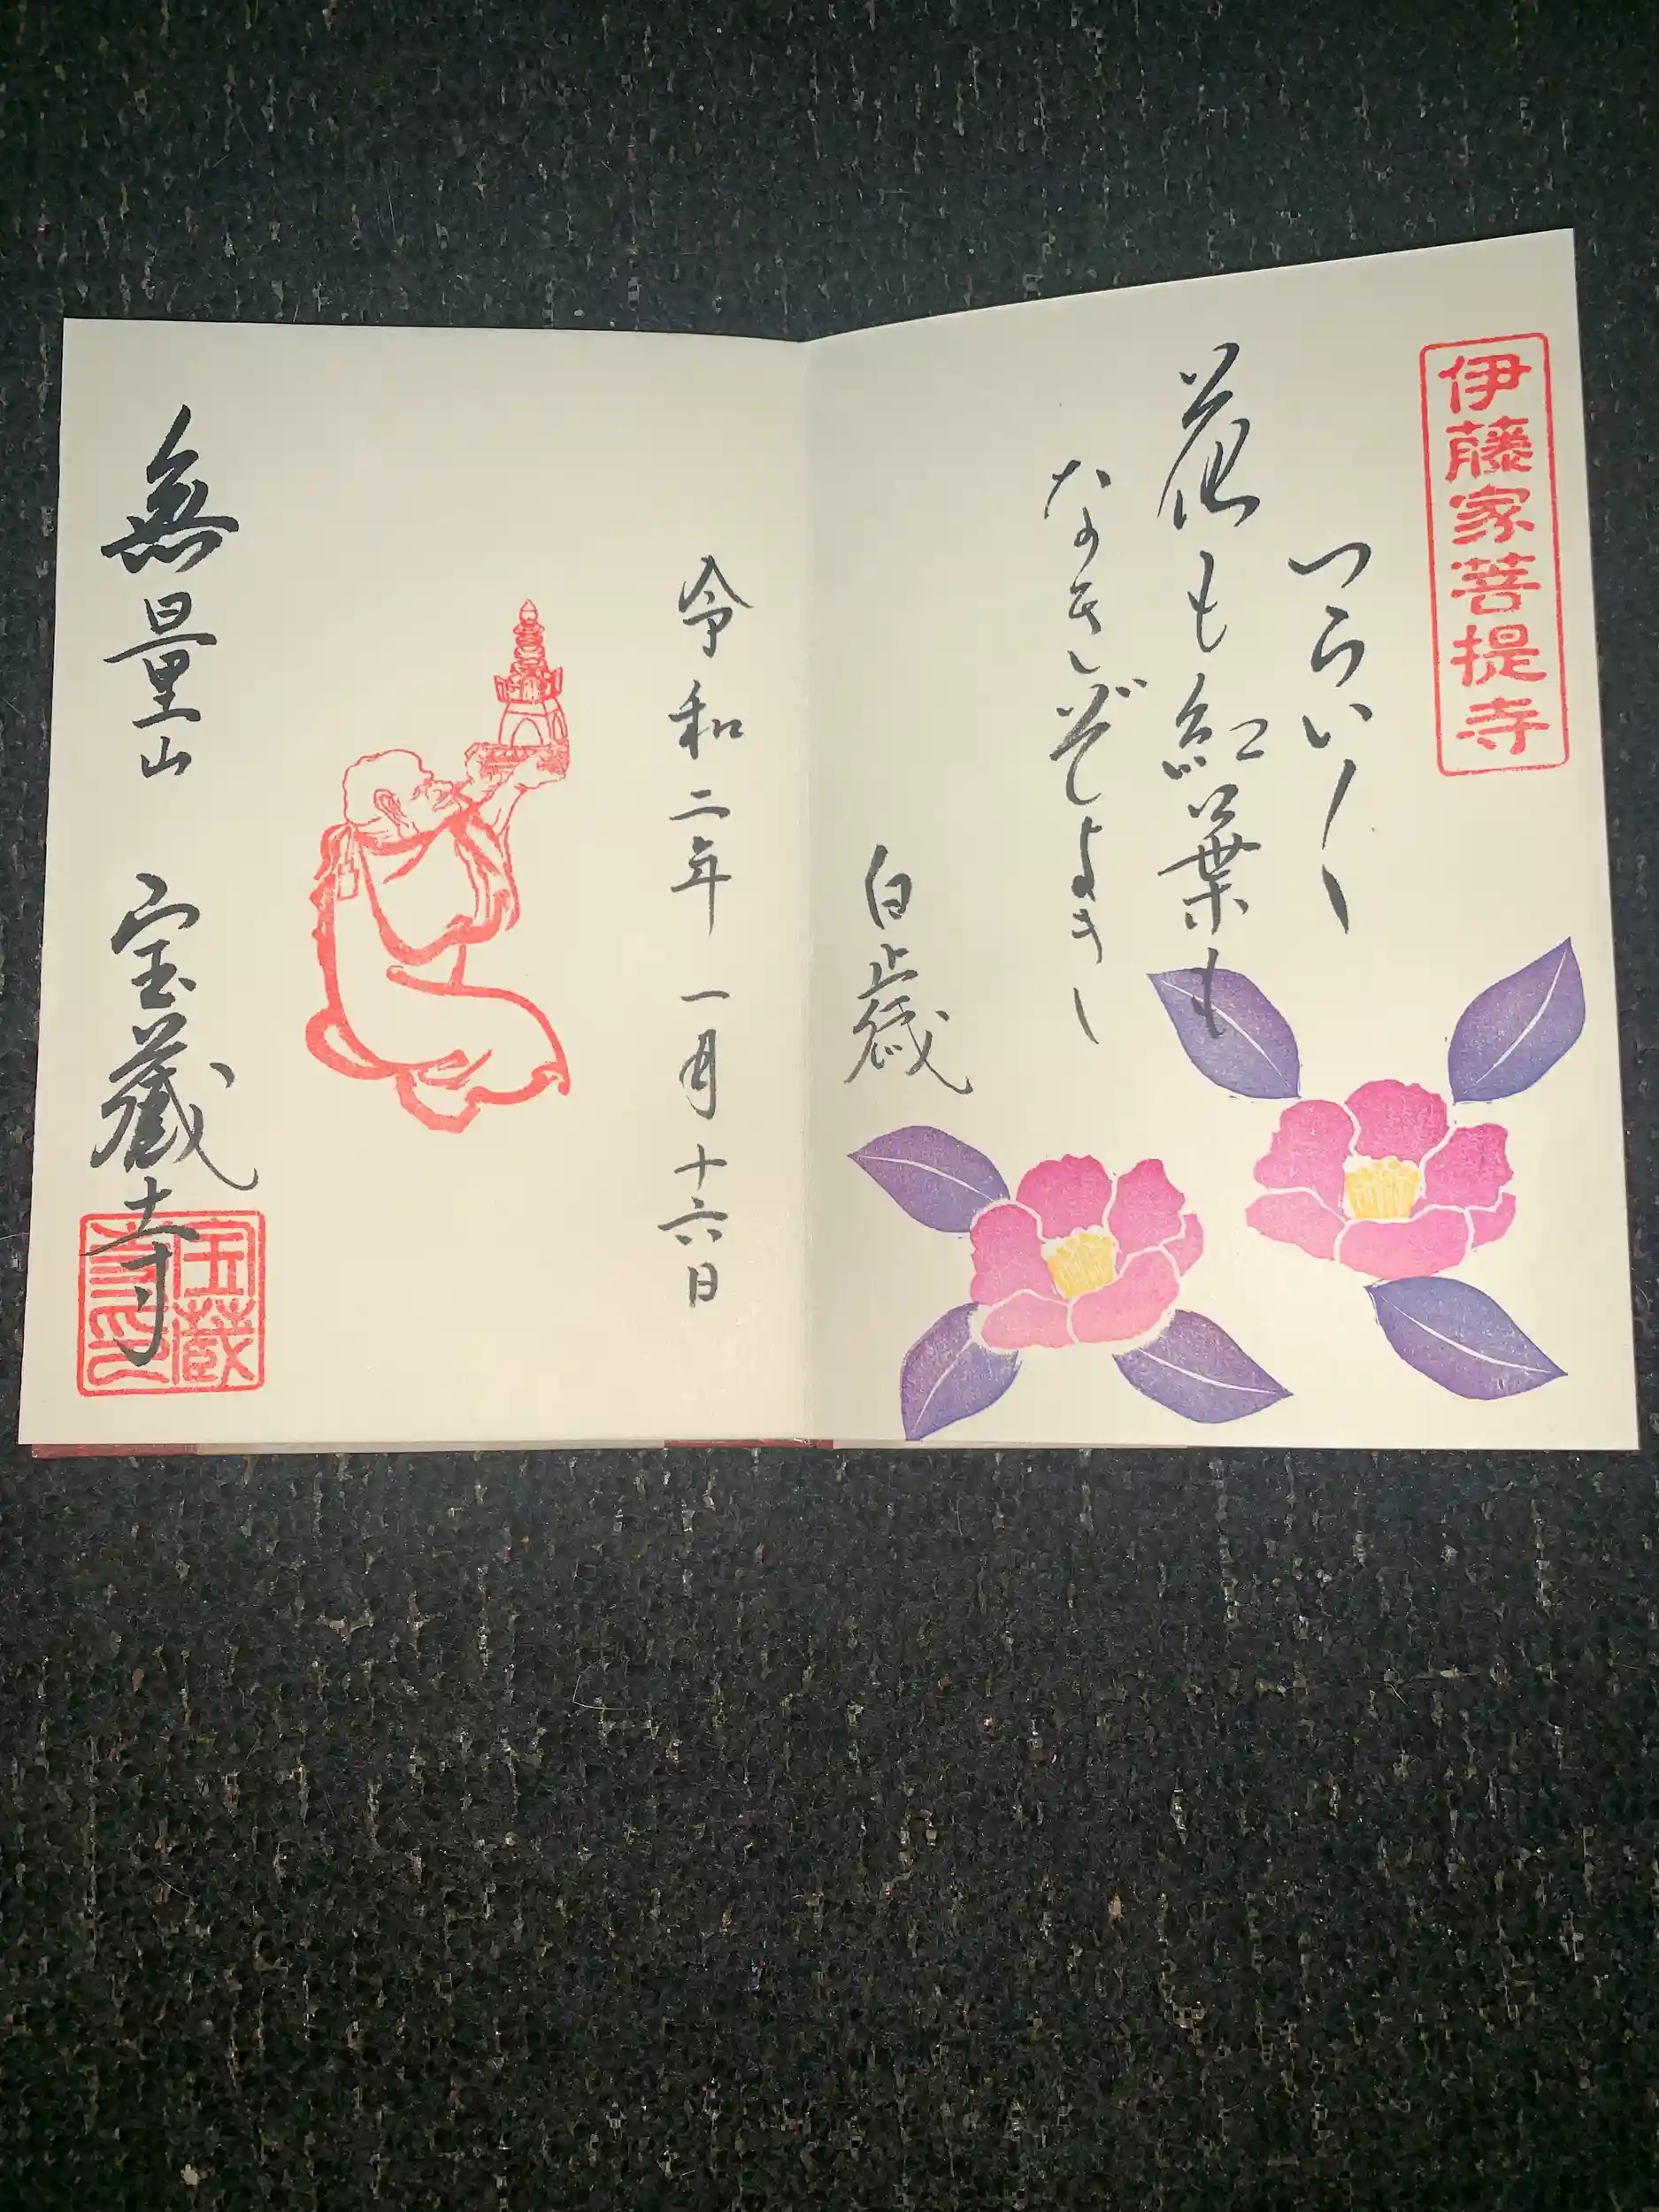 伊藤家菩提寺
つらい〳〵
花も紅葉も
なきぞよき
白歳
令和二年 一月十六日
無量山 宝蔵寺
宝蔵寺印